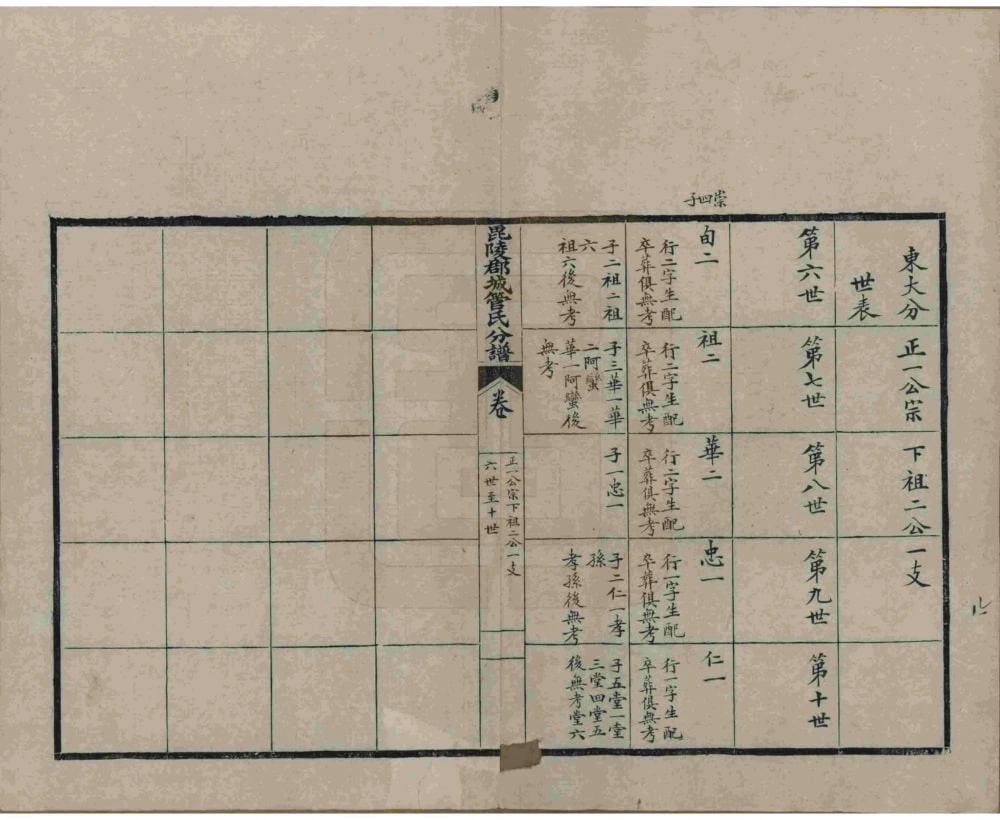 東大分　正一公宗　下祖二公一支
世表
第六世
第七世
第八世
第九世
第十世
崇四子
旬二
行二字生配
卒葬俱無考
子二祖二祖
六
祖六後無考
祖二
行二字生配
卒葬俱無考
子三華一華
二阿蠻
華一阿蠻後
無考
華二
行二字生配
卒葬俱無考
子一忠一
忠一
行一字生配
卒葬俱無考
子二仁一孝
孫
孝孫後無考
仁一
行一字生配
卒葬俱無考
子五堂一堂
三堂四堂五
後無考堂六
毘陵郡城管氏分譜
卷
正一公宗下祖二公一支
六世至十世